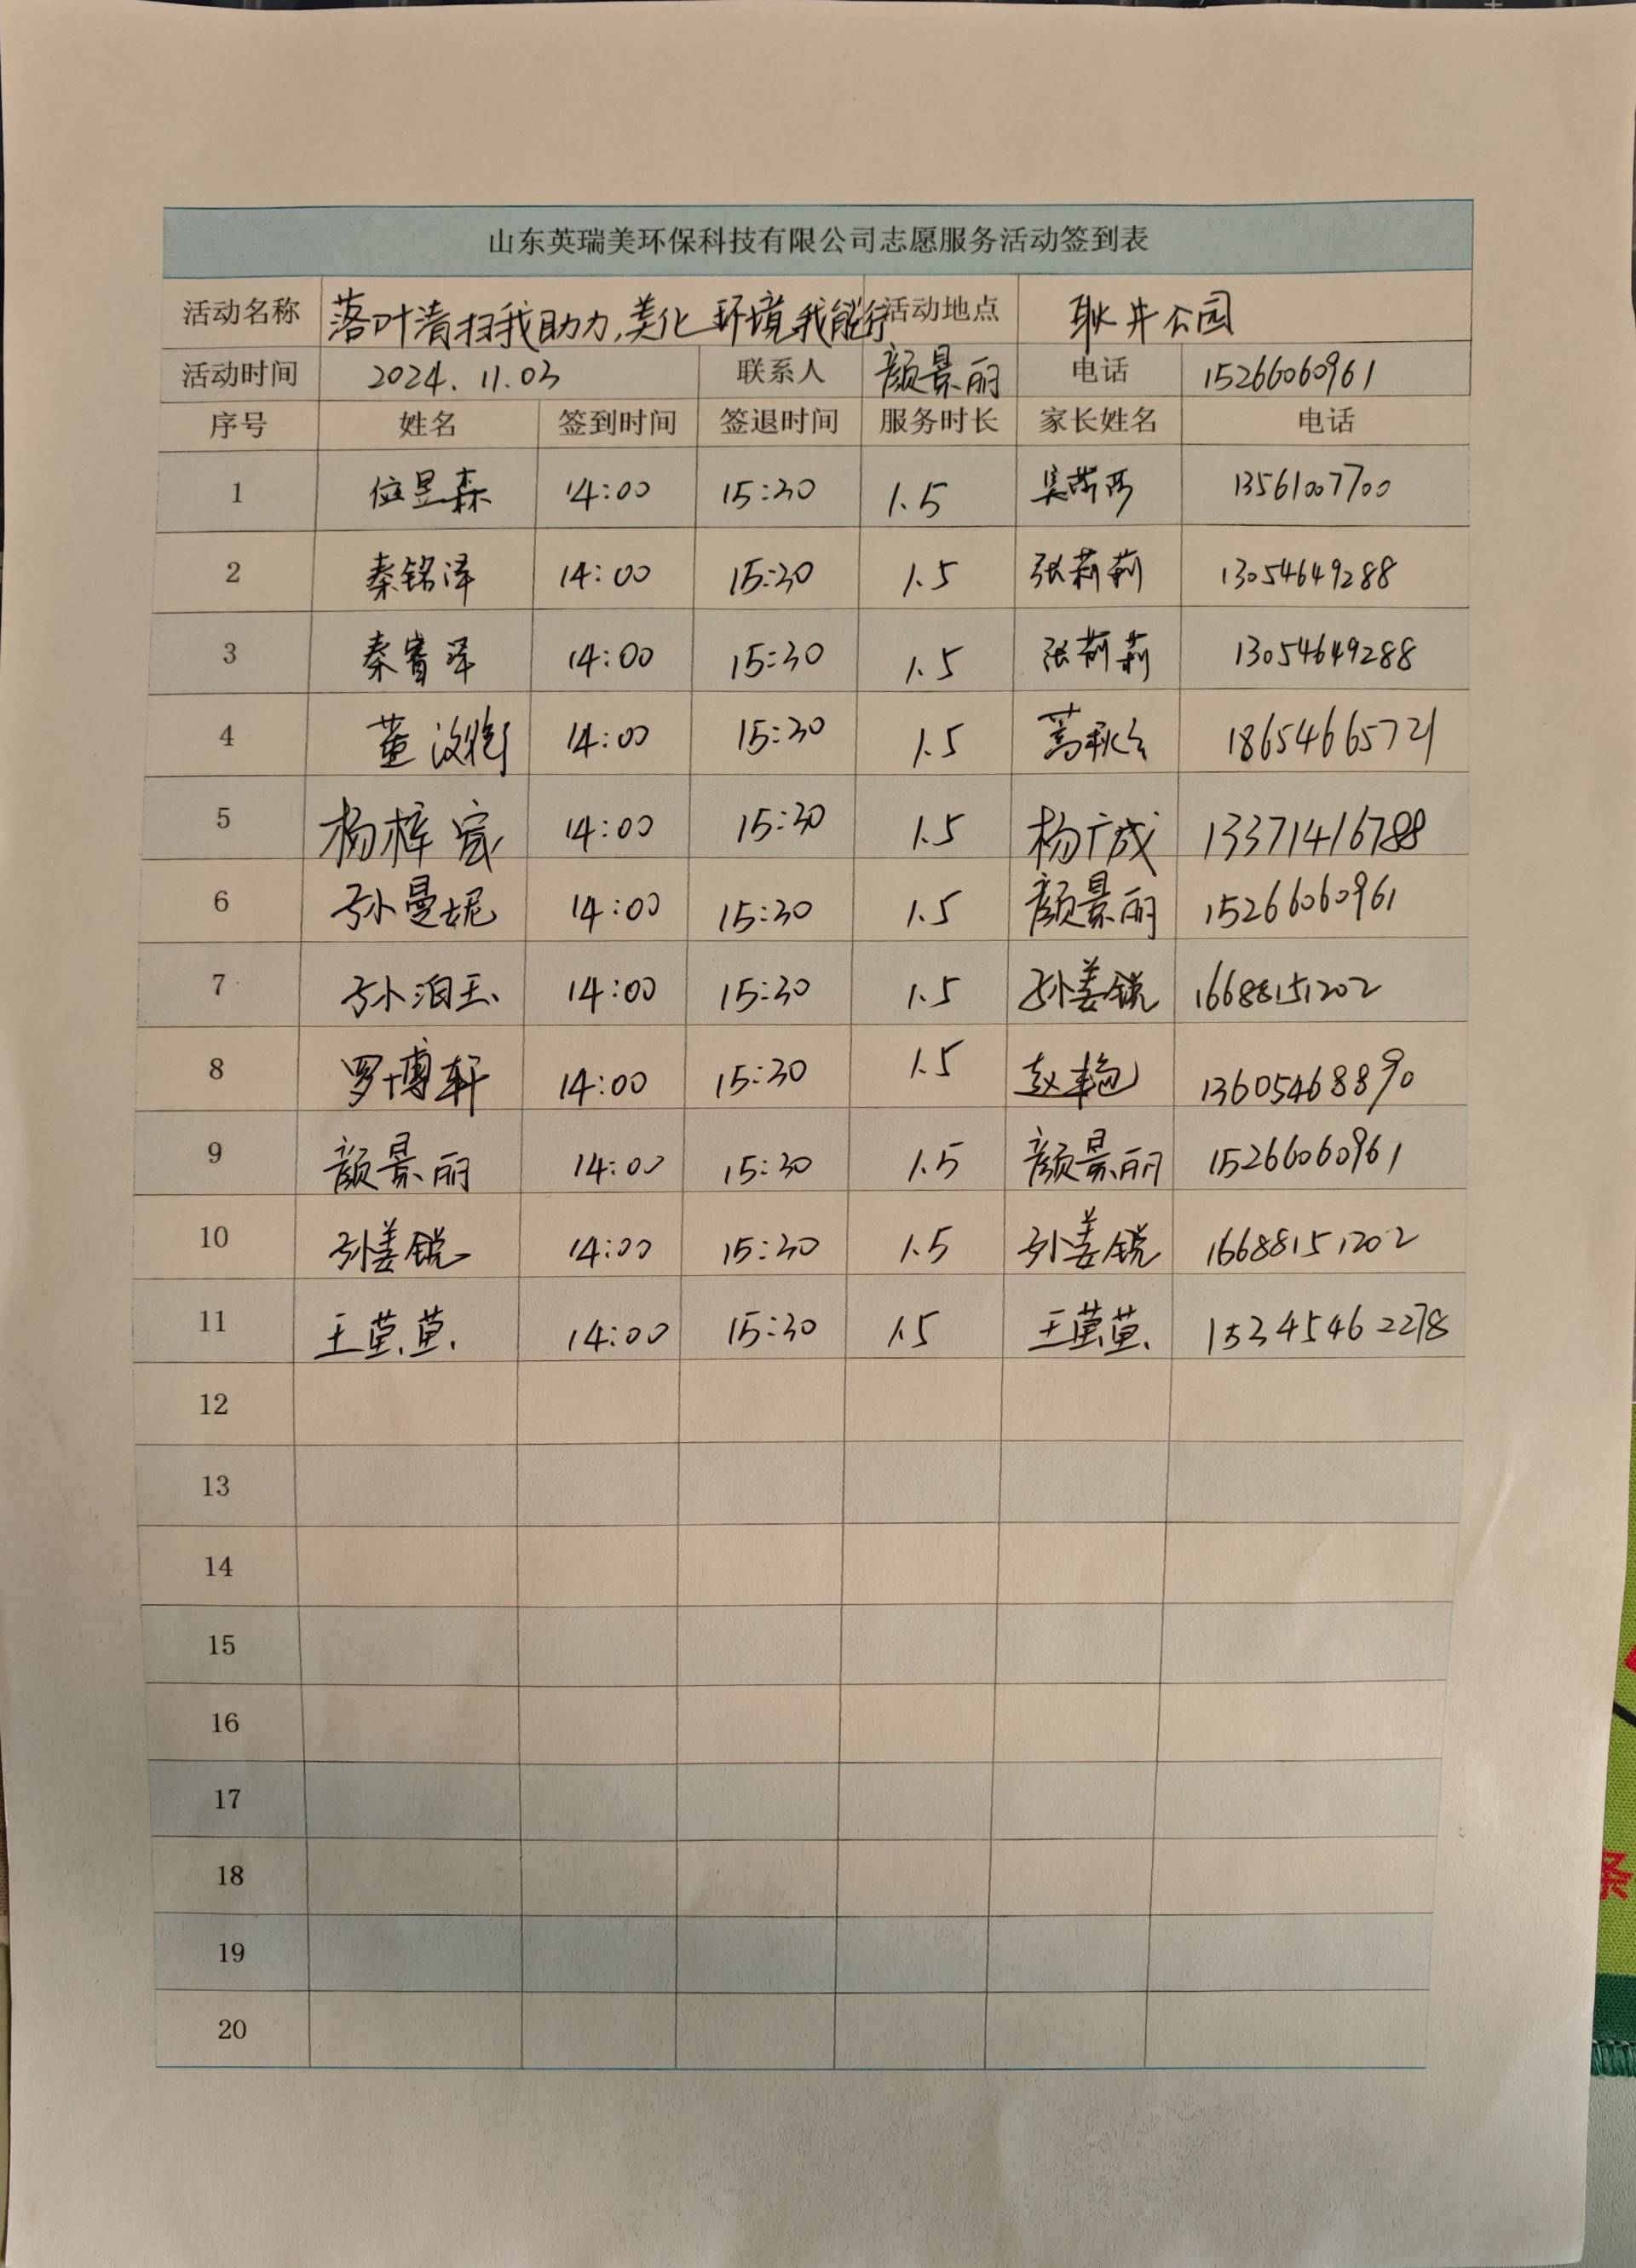 山东英瑞美环保科技有限公司志愿服务活动签到表
活动名称 落叶清扫我助力,美化环境我能行 活动地点 耿井公园
活动时间 2024.11.03 联系人 颜景丽 电话 15266060961
序号 姓名 签到时间 签退时间 服务时长 家长姓名 电话
1 位昱森 14:00 15:30 1.5 吴莎莎 13561007700
2 秦铭泽 14:00 15:30 1.5 张莉莉 13054649288
3 秦睿泽 14:00 15:30 1.5 张莉莉 13054649288
4 董 14:00 15:30 1.5 18654665721
5 杨梓宸 14:00 15:30 1.5 杨广成 13371416788
6 孙曼妮 14:00 15:30 1.5 颜景丽 15266060961
7 孙泊玉 14:00 15:30 1.5 孙姜锐 16688151202
8 罗博轩 14:00 15:30 1.5 赵艳 13605468890
9 颜景丽 14:00 15:30 1.5 颜景丽 15266060961
10 孙姜锐 14:00 15:30 1.5 孙姜锐 16688151202
11 王萱萱 14:00 15:30 1.5 王萱萱 15345462278
12
13
14
15
16
17
18
19
20
条